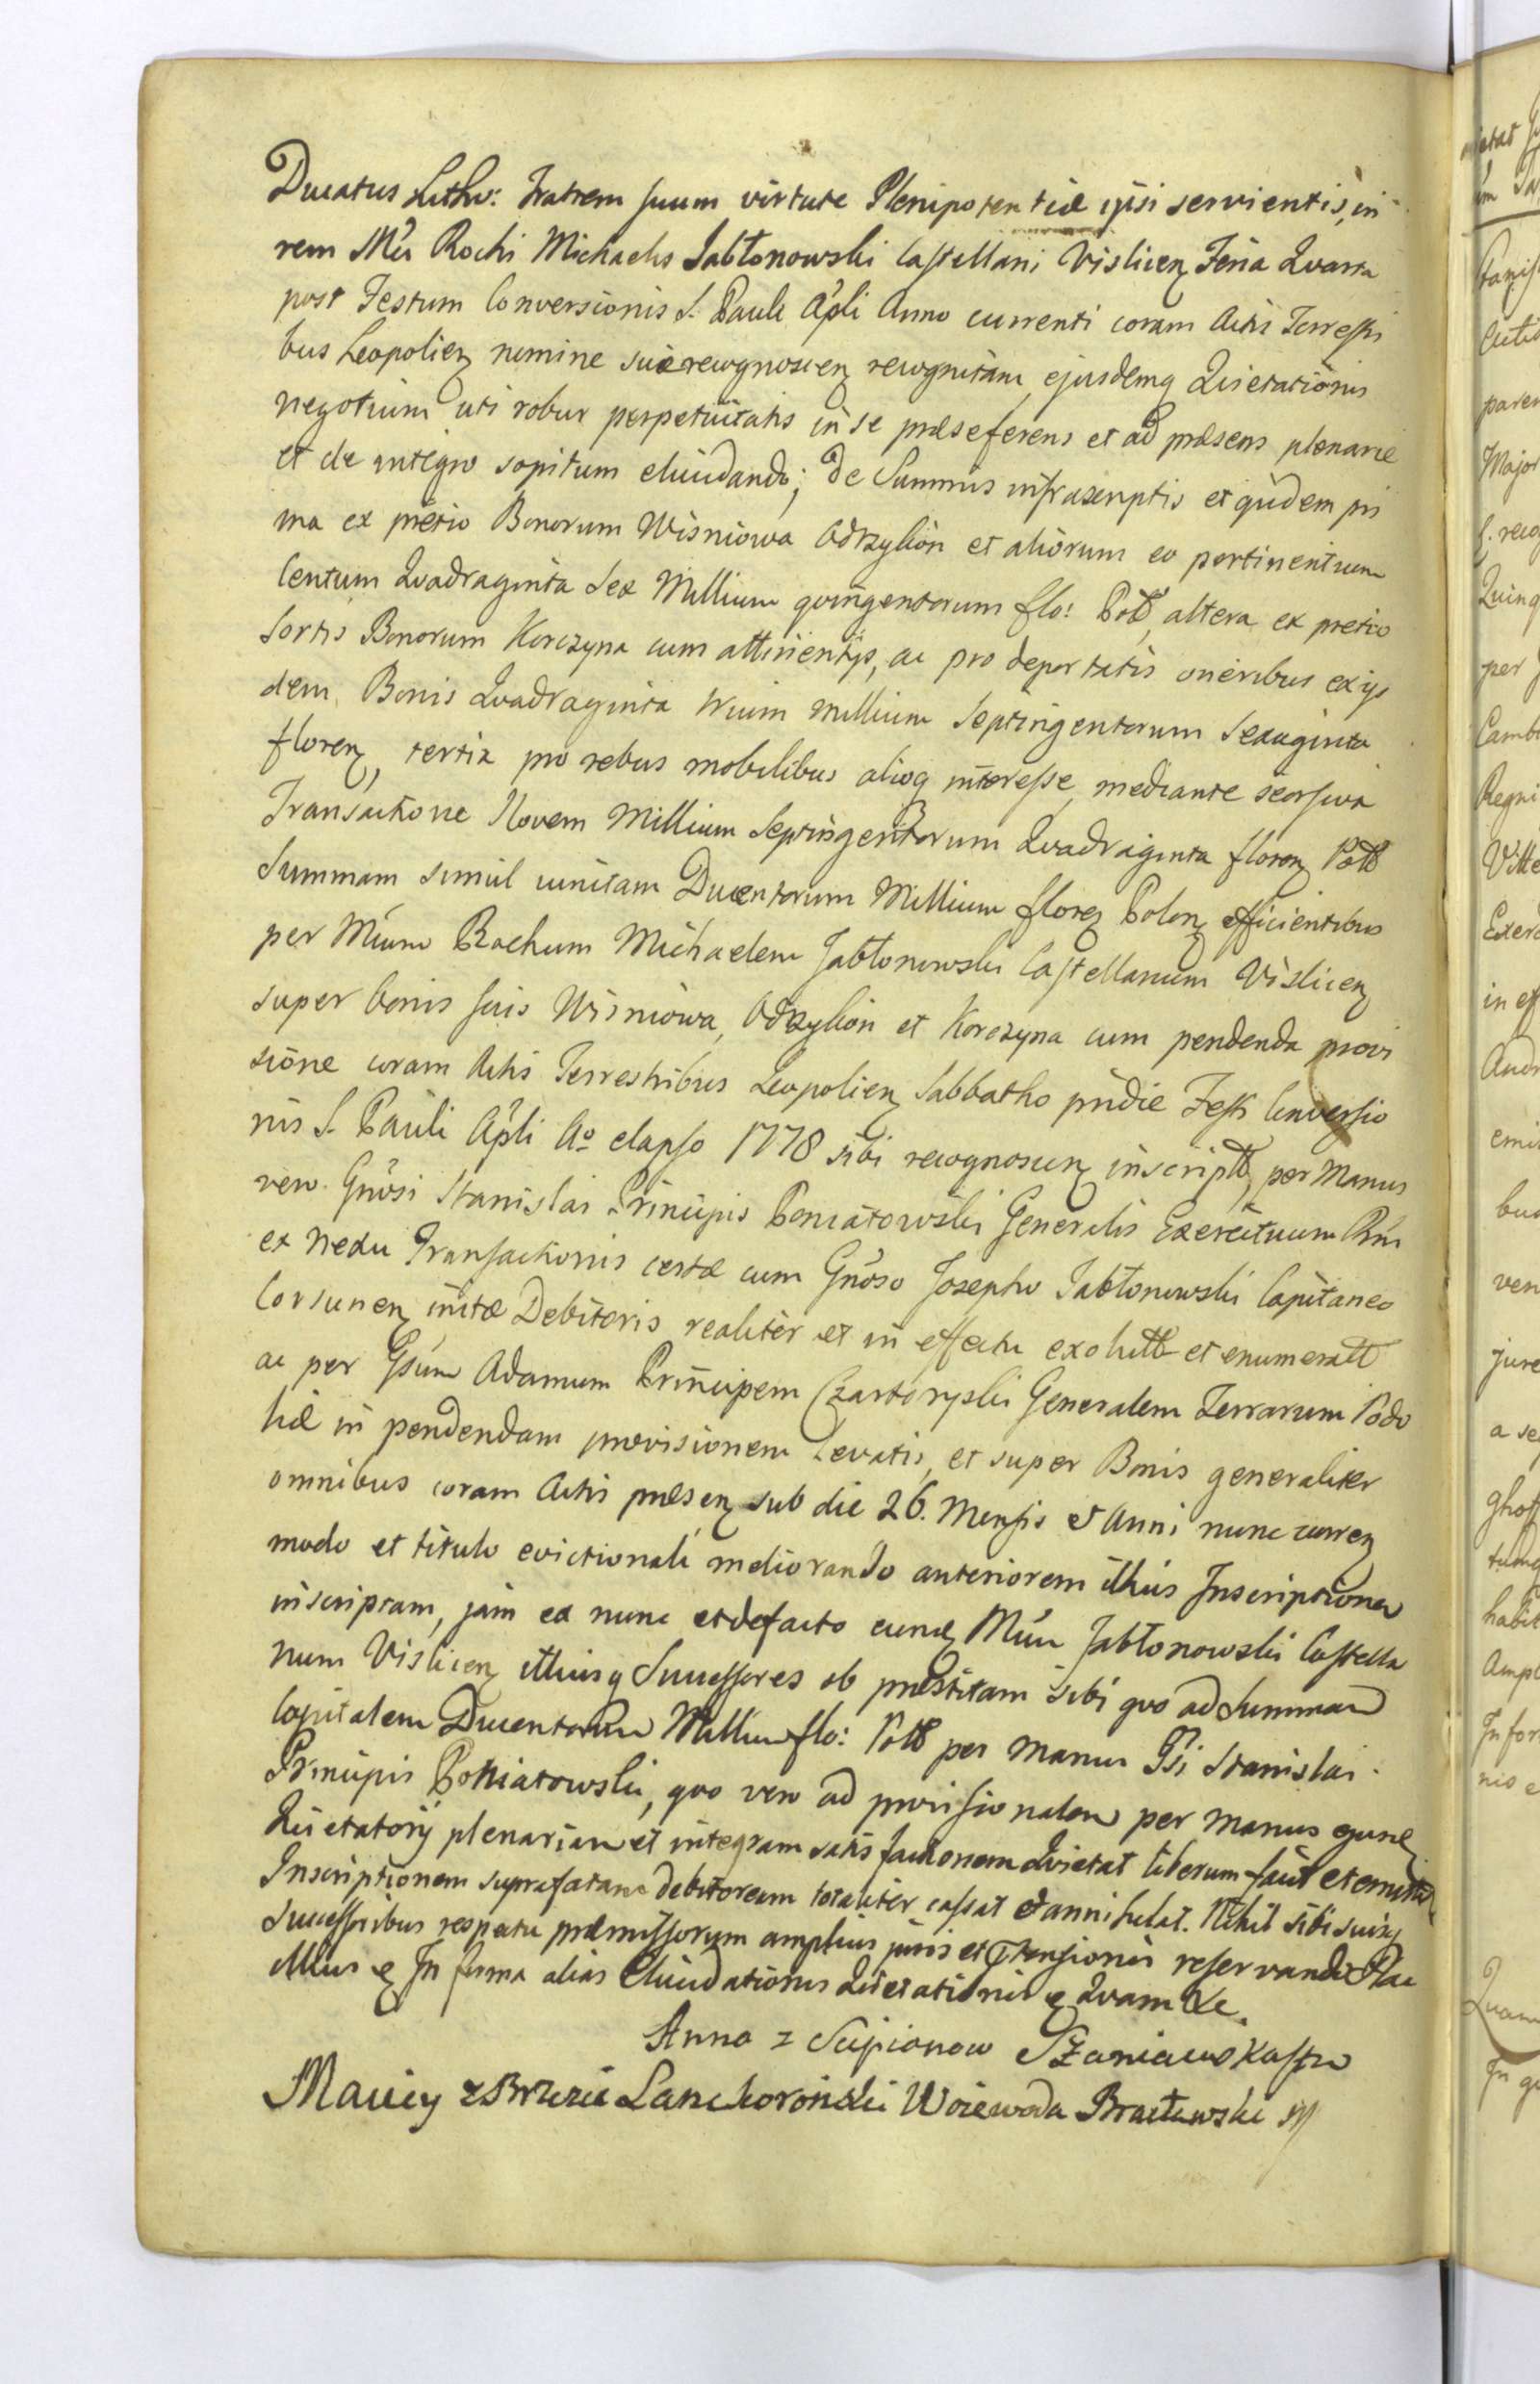 Ducatus Lithv: Fratrem suum virtute Plenipotentiæ ipsi servientis, in
rem Mci Rochi Michaelis Jabłonowski Castellani Vislicen Feria Quarta
post Festum Conversionis S. Pauli Apli Anno currenti coram Actis Terrestri
bus Leopolien nomine sui recognoscen recognitam, ejusdemq Quietationis
negotium uti robur perpetuitatis in se præseferens et ad præsens plenarie
et de integro sopitum elucidando; de Summis infrascriptis et quidem pri
ma ex pretio Bonorum Wisniowa Odrzykon et aliorum eo pertinentium
Centum Quadraginta Sex Millium quingentorum flo: Poll, altera ex pretio
Sortis Bonorum Korczyna cum attinentijs, ac pro deportatis oneribus ex ijs
dem Bonis Quadraginta trium millium Septingentorum Sexaginta
floren, tertia pro rebus mobilibus alioq interesse, mediante seorsiva
Transactione Novem Millium Septingentorum Quadraginta floren Poll
Summam simul unitam Ducentorum Millium floren Polon efficientibus
per Mcum Rochum Michaelem Jabłonowski Castellanum Vislicen
super bonis suis Wisniowa, Odrzykon et Korczyna cum pendenda provi
sione coram Actis Terrestribus Leopolien Sabbatho pridie Festi Conversio
nis S. Pauli Apli Ao elapso 1778 sibi recognoscen inscript, per Manus
vero Gnosi Stanislai Principis Poniatowski Generalis Exercituum
ex nexu Transactionis certæ cum Gnoso Josepho Jabłonowski Capitaneo
Corsunen initæ Debitoris realiter et in effectu exolutt et enumeratt
ac per Adamum Principem Czartoryski Generalem Terrarum Podo
liæ in pendendam provisionem levatis, et super Bonis generaliter
omnibus coram Actis præsen sub die 26. Mensis et Anni nunc curren
modo et titulo evictionali meliorando anteriorem illius Inscriptionem
inscriptam, jam ex nunc et de facto eund Mcum Jabłonowski Castella
num Vislicen illiusq Successores ob præstitam sibi quo ad Summam
Capitalem Ducentorum Millium flo: Poll per manus Stanislai
Principis Poniatowski, quo vero ad provisionalem per manus
Quietatorij plenariam et integram satisfactionem Quietat liberum facit et emittit
Inscriptionem suprafatam debitoream totaliter cassat et annihilat. Nihil sibi suisq
Successoribus respectu præmissorum amplius juris et reservando
In forma alias Elucidationis Quietationis Quam &c.
Anna z Scipionow Szaniawska
Maciey z Brzezia Lanckoroński Woiewoda Bracławski